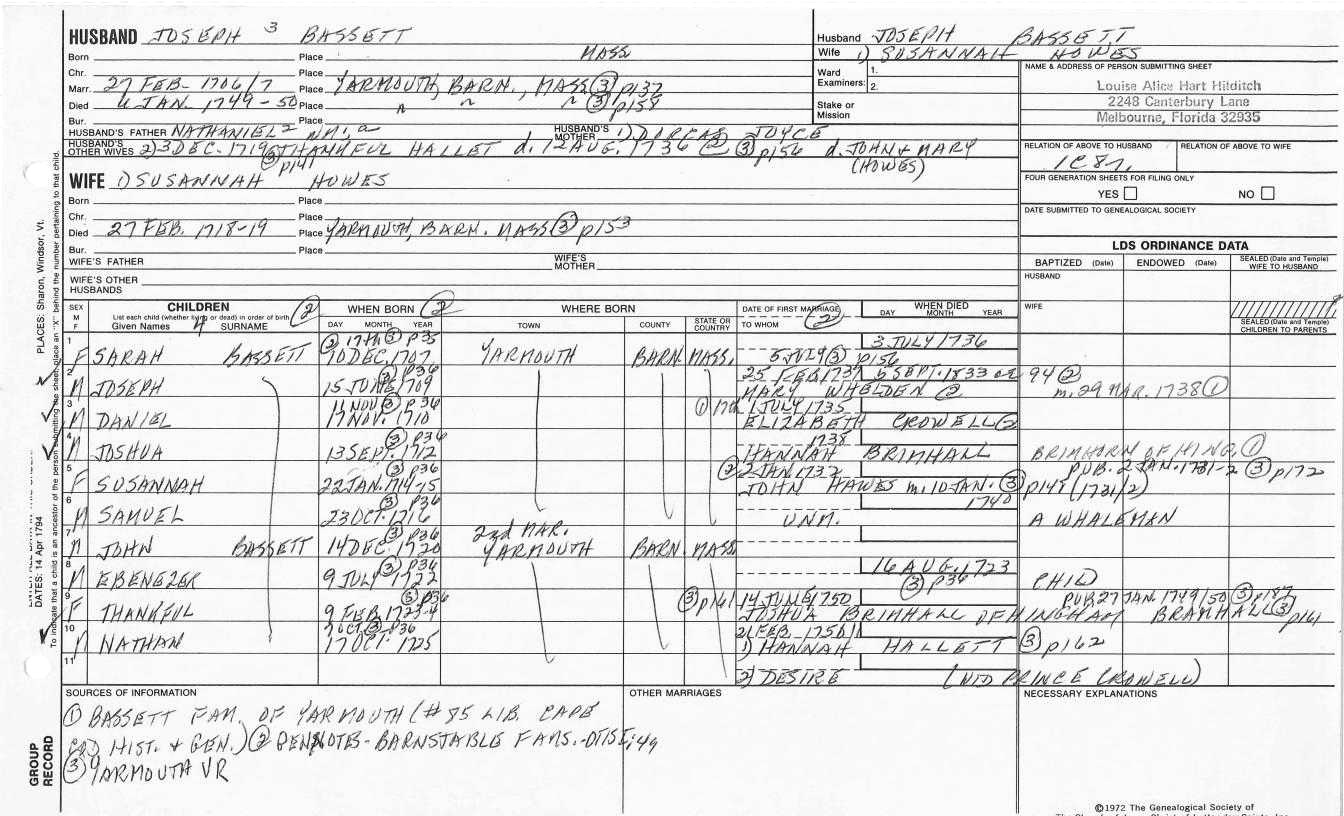 HUSBAND JOSEPH 3 BASSETT
Born Place MASS
Chr. Place
Marr. 27 FEB. 1706/7 Place YARMOUTH, BARN., MASS (3) p137
Died 4 JAN. 1749-50 Place " " " (3) p158
Bur. Place
HUSBAND'S FATHER NATHANIEL 2 HUSBAND'S MOTHER 1) DORCAS JOYCE
HUSBAND'S OTHER WIVES 2) 3 DEC. 1719 THANKFUL HALLET d. 12 AUG. 1736 (2) (3) p156 d. JOHN + MARY
(3) p141 (HOWES)
Husband JOSEPH BASSETT
Wife 1) SUSANNAH HOWES
Ward 1.
Examiners: 2.
Stake or
Mission
NAME & ADDRESS OF PERSON SUBMITTING SHEET
Louise Alice Hart Hilditch
2248 Canterbury Lane
Melbourne, Florida 32935
RELATION OF ABOVE TO HUSBAND RELATION OF ABOVE TO WIFE
1C8r.
FOUR GENERATION SHEETS FOR FILING ONLY
YES NO
DATE SUBMITTED TO GENEALOGICAL SOCIETY
WIFE 1) SUSANNAH HOWES
Born Place
Chr. Place
Died 27 FEB. 1718-19 Place YARMOUTH, BARN. MASS (3) p153
Bur. Place
WIFE'S FATHER WIFE'S MOTHER
WIFE'S OTHER HUSBANDS
LDS ORDINANCE DATA
BAPTIZED (Date) ENDOWED (Date) SEALED (Date and Temple) WIFE TO HUSBAND
HUSBAND
WIFE
SEALED (Date and Temple) CHILDREN TO PARENTS
SEX M F CHILDREN (2) WHEN BORN (2) WHERE BORN DATE OF FIRST MARRIAGE (2) WHEN DIED
List each child (whether living or dead) in order of birth
Given Names 4 SURNAME DAY MONTH YEAR TOWN COUNTY STATE OR COUNTRY TO WHOM DAY MONTH YEAR
1 (2) 17th (3) p35 3 JULY 1736
F SARAH BASSETT 10 DEC. 1707 YARMOUTH BARN. MASS. 5 JULY (3) p156
2 (3) p36 25 FEB 1737 5 SEPT. 1833 OR 94 (2)
M JOSEPH 15 JUNE 1709 MARY WHELDEN (2) m. 29 MAR. 1738 (1)
3 11 NOV (3) p36 (1) 1 JULY 1735
M DANIEL 17 NOV. 1710 ELIZABETH CROWELL (2)
4 (3) p36 1738
M JOSHUA 13 SEPT. 1712 HANNAH BRIMHALL BRIMHORN OF HING. (1)
5 (3) p36 (2) 2 JAN. 1732 PUB. 2 JAN. 1731-2 (3) p172
F SUSANNAH 22 JAN. 1714-15 JOHN HAWES m. 10 JAN. (3) p148 (1731/2)
6 (3) p36 1740
M SAMUEL 23 OCT. 1716 UNM. A WHALEMAN
7 (3) p36 2nd MAR.
M JOHN BASSETT 14 DEC. 1720 YARMOUTH BARN. MASS
8 (3) p36 16 AUG. 1723
M EBENEZER 9 JULY 1722 (3) p36 CHILD
9 (3) p36 (3) p161 14 JUNE 1750 PUB 27 JAN. 1749/50 (3) p187
F THANKFUL 9 FEB. 1723-4 JOSHUA BRIMHALL OF HINGHAM BRAMHALL (3) p161
10 7 OCT. (3) p36 21 FEB. 1750
M NATHAN 17 OCT. 1725 1) HANNAH HALLETT (3) p162
11 2) DESIRE (WID PRINCE CROWELL)
SOURCES OF INFORMATION OTHER MARRIAGES NECESSARY EXPLANATIONS
(1) BASSETT FAM. OF YARMOUTH (#85 LIB. CAPE
COD HIST. + GEN.) (2) GEN NOTES-BARNSTABLE FAMS.-OTIS I; 49
(3) YARMOUTH VR
©1972 The Genealogical Society of
PLACES: Sharon, Windsor, Vt.
DATES: 14 Apr 1794
To indicate that a child is an ancestor of the person submitting the sheet, place an "X" behind the number pertaining to that child.
GROUP RECORD